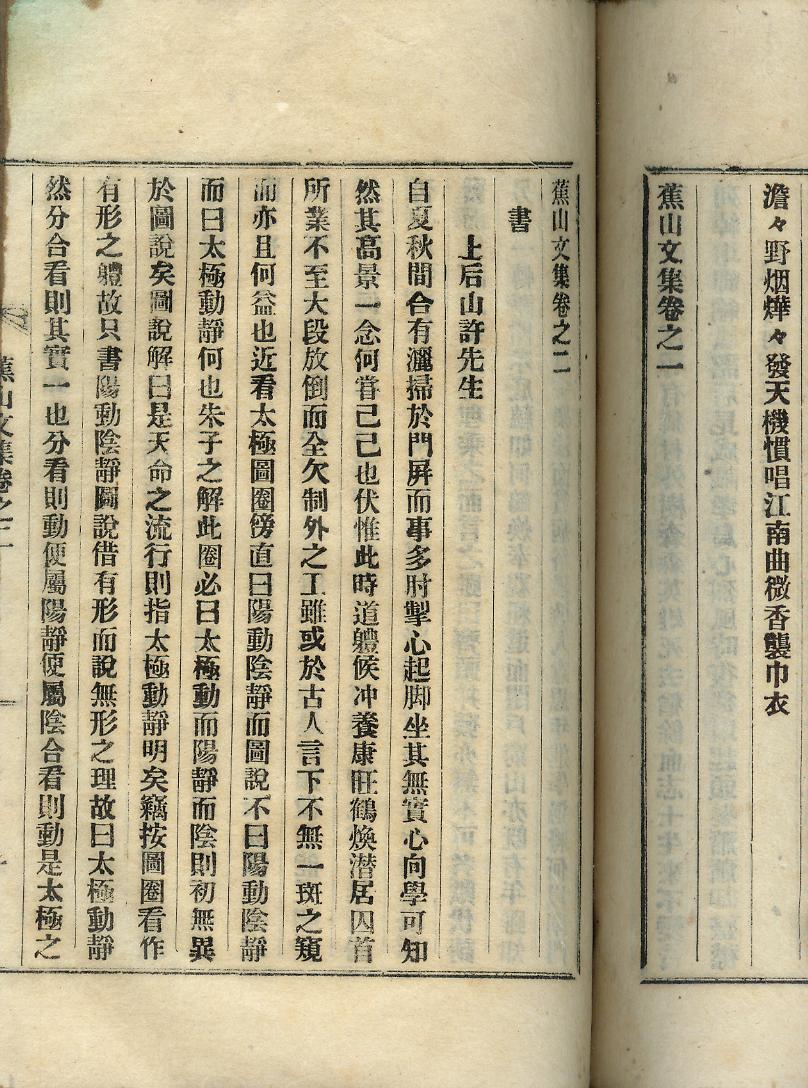 澹々野烟燁々發天機慣唱江南曲微香襲巾衣
蕉山文集卷之一
蕉山文集卷之二
書
上后山許先生
自夏秋間合有灑掃於門屏而事多肘掣心起脚坐其無實心向學可知
然其高景一念何甞已已也伏惟此時道軆候冲養康旺鶴煥潛居囚首
所業不至大段放倒而全欠制外之工雖或於古人言下不無一斑之窺
而亦且何益也近看太極圖圈傍直曰陽動陰靜而圖說不曰陽動陰靜
而曰太極動靜何也朱子之解此圈必曰太極動而陽靜而陰則初無異
於圖說矣圖說解曰是天命之流行則指太極動靜明矣竊按圖圈看作
有形之軆故只書陽動陰靜圖說借有形而說無形之理故曰太極動靜
然分合看則其實一也分看則動便屬陽靜便屬陰合看則動是太極之
蕉山文集卷之二